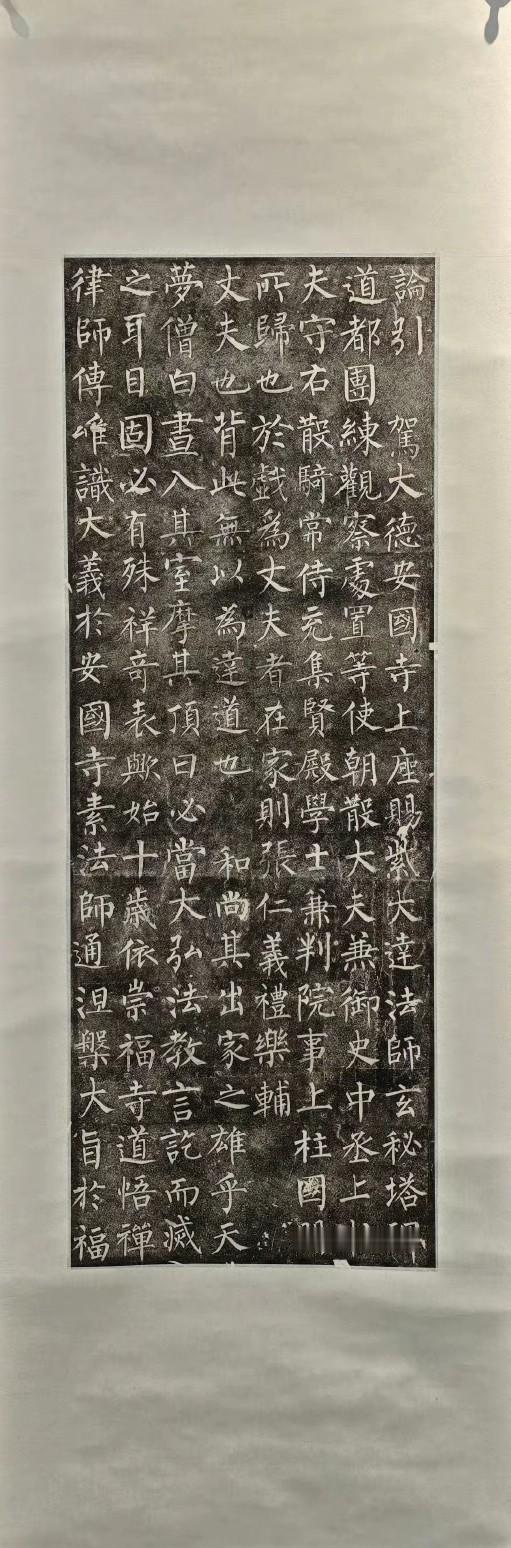 論引　駕大德安國寺上座賜紫大達法師玄秘塔
道都團練觀察處置等使朝散大夫兼御史中丞上
夫守右散騎常侍充集賢殿學士兼判院事上柱國
所歸也於戲為丈夫者在家則張仁義禮樂輔
丈夫也背此無以為達道也　和尚其出家之雄乎天
夢僧白晝入其室摩其頂曰必當大弘法教言訖而滅
之耳目固必有殊祥奇表歟始十歲依崇福寺道悟禪
律師傳唯識大義於安國寺素法師通涅槃大旨於福